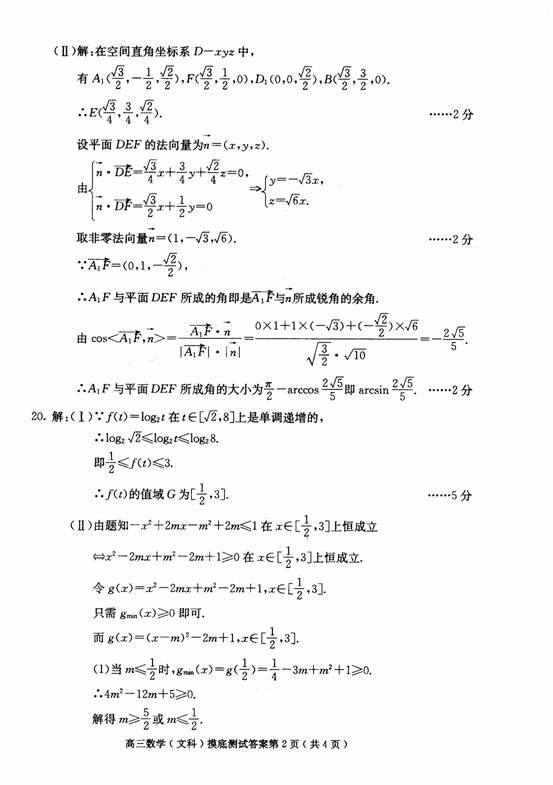 (Ⅱ)解:在空间直角坐标系 D-xyz 中,
有 A₁(√3/2,-1/2,√2/2),F(√3/2,1/2,0),D₁(0,0,√2/2),B(√3/2,3/2,0).
∴E(√3/4,3/4,√2/4). ……2 分
设平面 DEF 的法向量为n→=(x,y,z).
由{n→·DE→=√3/4x+3/4y+√2/4z=0, n→·DF→=√3/2x+1/2y=0 ⇒{y=-√3x, z=√6x.
取非零法向量n→=(1,-√3,√6). ……2 分
∵A₁F→=(0,1,-√2/2),
∴A₁F 与平面 DEF 所成的角即是A₁F→与n→所成锐角的余角.
由 cos<A₁F→,n→>=A₁F→·n→/|A₁F→|·|n→|=0×1+1×(-√3)+(-√2/2)×√6/√(3/2)·√10=-2√5/5.
∴A₁F 与平面 DEF 所成角的大小为π/2-arccos 2√5/5即 arcsin 2√5/5. ……2 分
20. 解:(Ⅰ)∵f(t)=log₂t 在 t∈[√2,8]上是单调递增的,
∴log₂√2≤log₂t≤log₂8.
即1/2≤f(t)≤3.
∴f(t)的值域 G 为[1/2,3]. ……5 分
(Ⅱ)由题知-x²+2mx-m²+2m≤1 在 x∈[1/2,3]上恒成立
⇔x²-2mx+m²-2m+1≥0 在 x∈[1/2,3]上恒成立.
令 g(x)=x²-2mx+m²-2m+1,x∈[1/2,3].
只需 gmin(x)≥0 即可.
而 g(x)=(x-m)²-2m+1,x∈[1/2,3].
(1)当 m≤1/2时,gmin(x)=g(1/2)=1/4-3m+m²+1≥0.
∴4m²-12m+5≥0.
解得 m≥5/2或 m≤1/2.
高三数学(文科)摸底测试答案第 2 页(共 4 页)